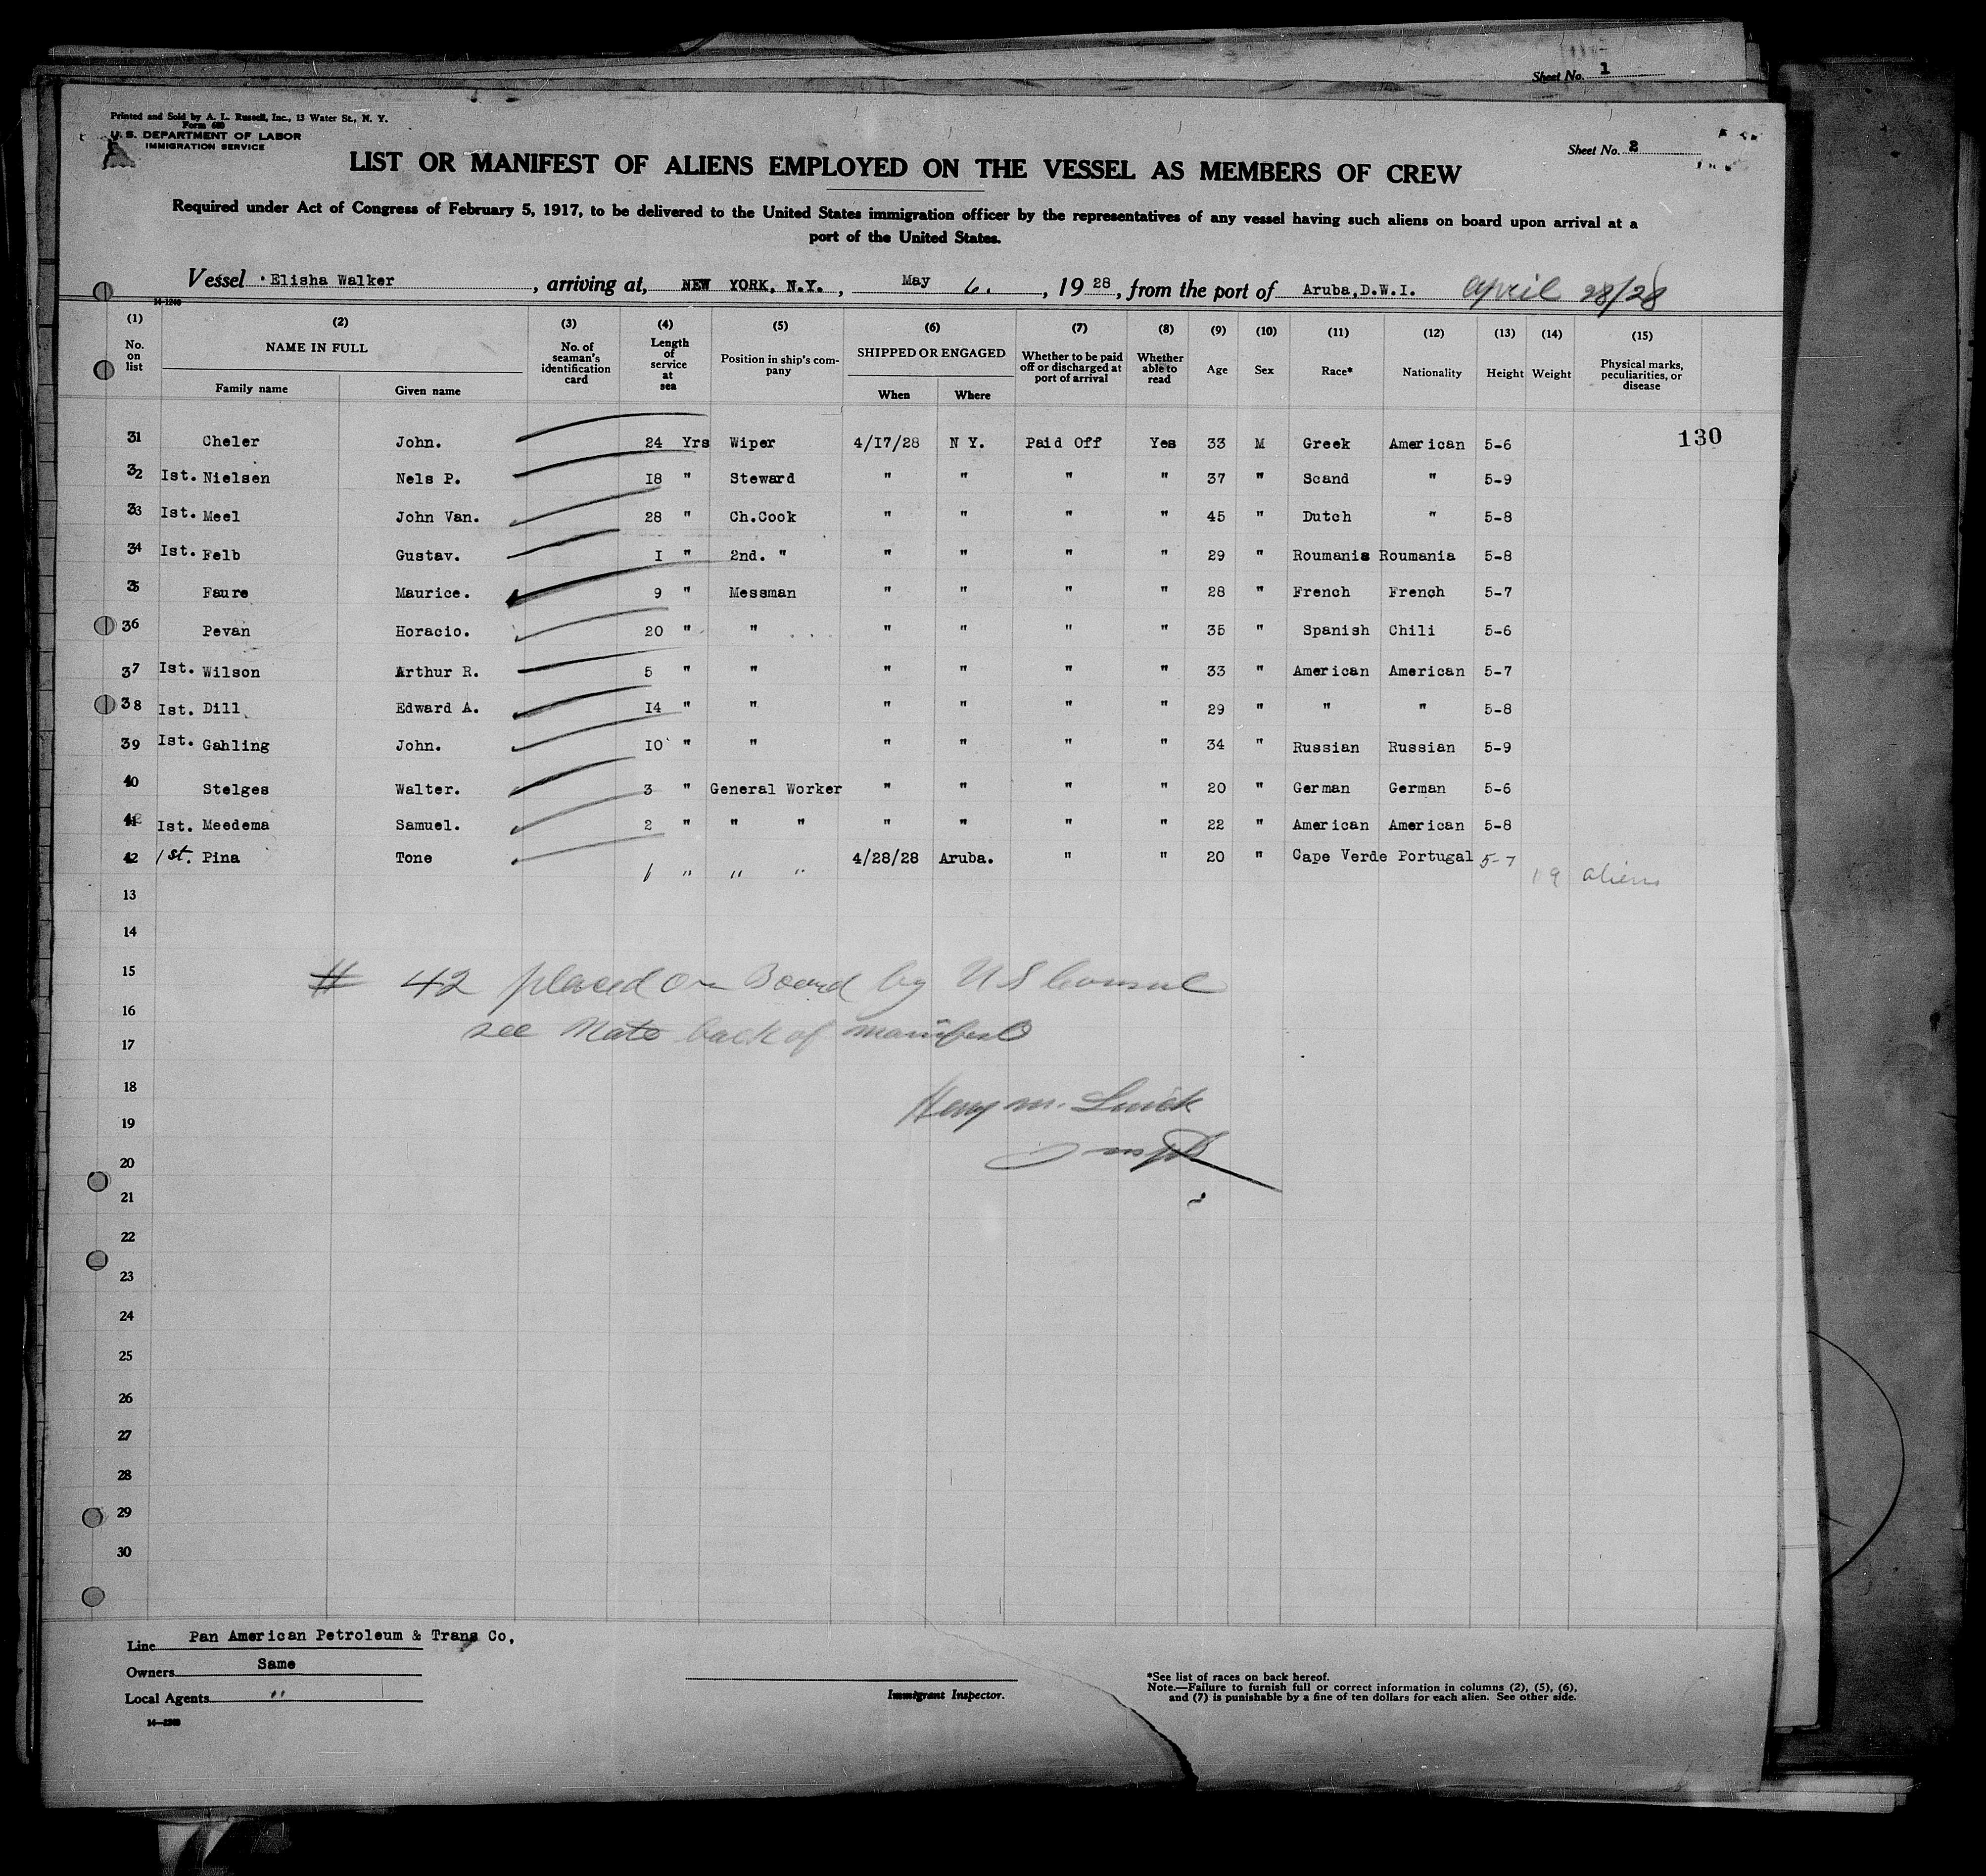 Sheet No. 1
Printed and Sold by A. L. Russell, Inc., 13 Water St., N. Y.
Form 680
U. S. DEPARTMENT OF LABOR
IMMIGRATION SERVICE
Sheet No. 2
LIST OR MANIFEST OF ALIENS EMPLOYED ON THE VESSEL AS MEMBERS OF CREW
Required under Act of Congress of February 5, 1917, to be delivered to the United States immigration officer by the representatives of any vessel having such aliens on board upon arrival at a
port of the United States.
Vessel Elisha Walker, arriving at, NEW YORK, N.Y., May 6., 1928, from the port of Aruba, D.W.I. April 28/28
14-1240
(1) (2) (3) (4) (5) (6) (7) (8) (9) (10) (11) (12) (13) (14) (15)
No. on list NAME IN FULL Family name Given name No. of seaman's identification card Length of service at sea Position in ship's company SHIPPED OR ENGAGED When Where Whether to be paid off or discharged at port of arrival Whether able to read Age Sex Race* Nationality Height Weight Physical marks, peculiarities, or disease
130
31 Cheler John. 24 Yrs Wiper 4/17/28 N Y. Paid Off Yes 33 M Greek American 5-6
32 Ist. Nielsen Nels P. 18 " Steward " " " " 37 " Scand " 5-9
33 Ist. Meel John Van. 28 " Ch.Cook " " " " 45 " Dutch " 5-8
34 Ist. Felb Gustav. I " 2nd. " " " " " 29 " Roumania Roumania 5-8
35 Faure Maurice. 9 " Messman " " " " 28 " French French 5-7
36 Pevan Horacio. 20 " " " " " " 35 " Spanish Chili 5-6
37 Ist. Wilson Arthur R. 5 " " " " " " 33 " American American 5-7
38 Ist. Dill Edward A. I4 " " " " " " 29 " " " 5-8
39 Ist. Gahling John. IO " " " " " " 34 " Russian Russian 5-9
40 Stelges Walter. 3 " General Worker " " " " 20 " German German 5-6
41 Ist. Meedema Samuel. 2 " " " " " " " 22 " American American 5-8
42 1st. Pina Tone 1 " " " 4/28/28 Aruba. " " 20 " Cape Verde Portugal 5-7
19 aliens
13
14
15
# 42 placed on Board by U S Consul
16
see Note back of manifest
17
18
Henry M.
19
20
21
22
23
24
25
26
27
28
29
30
Line Pan American Petroleum & Trans Co,
Owners Same
Local Agents "
14-1240
Immigrant Inspector.
*See list of races on back hereof.
Note.—Failure to furnish full or correct information in columns (2), (5), (6),
and (7) is punishable by a fine of ten dollars for each alien. See other side.